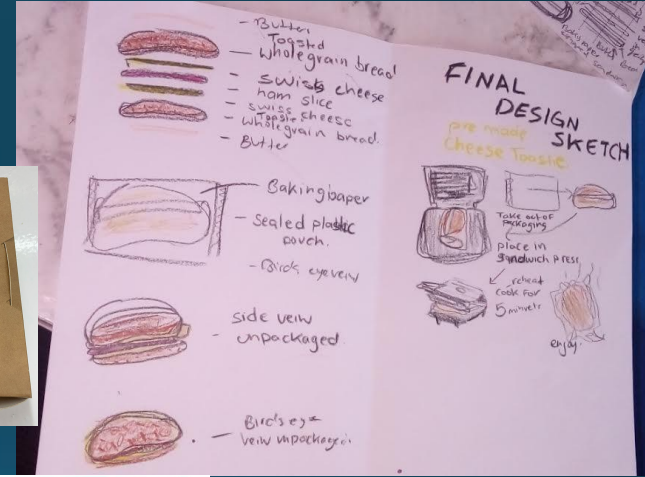 - Butter
Toasted
- wholegrain bread
- swiss cheese
- ham slice
- swiss cheese
Toasted
- wholegrain bread.
- Butter
- Baking paper
- Sealed plastic
pouch.
- Birds eye veiw
side veiw
- unpackaged
Bird's eye
- veiw unpackaged.
FINAL
DESIGN
SKETCH
pre made
Cheese Toastie
Take out of
packaging
place in
sandwich press
reheat
cook for
5 minuets
enjoy.